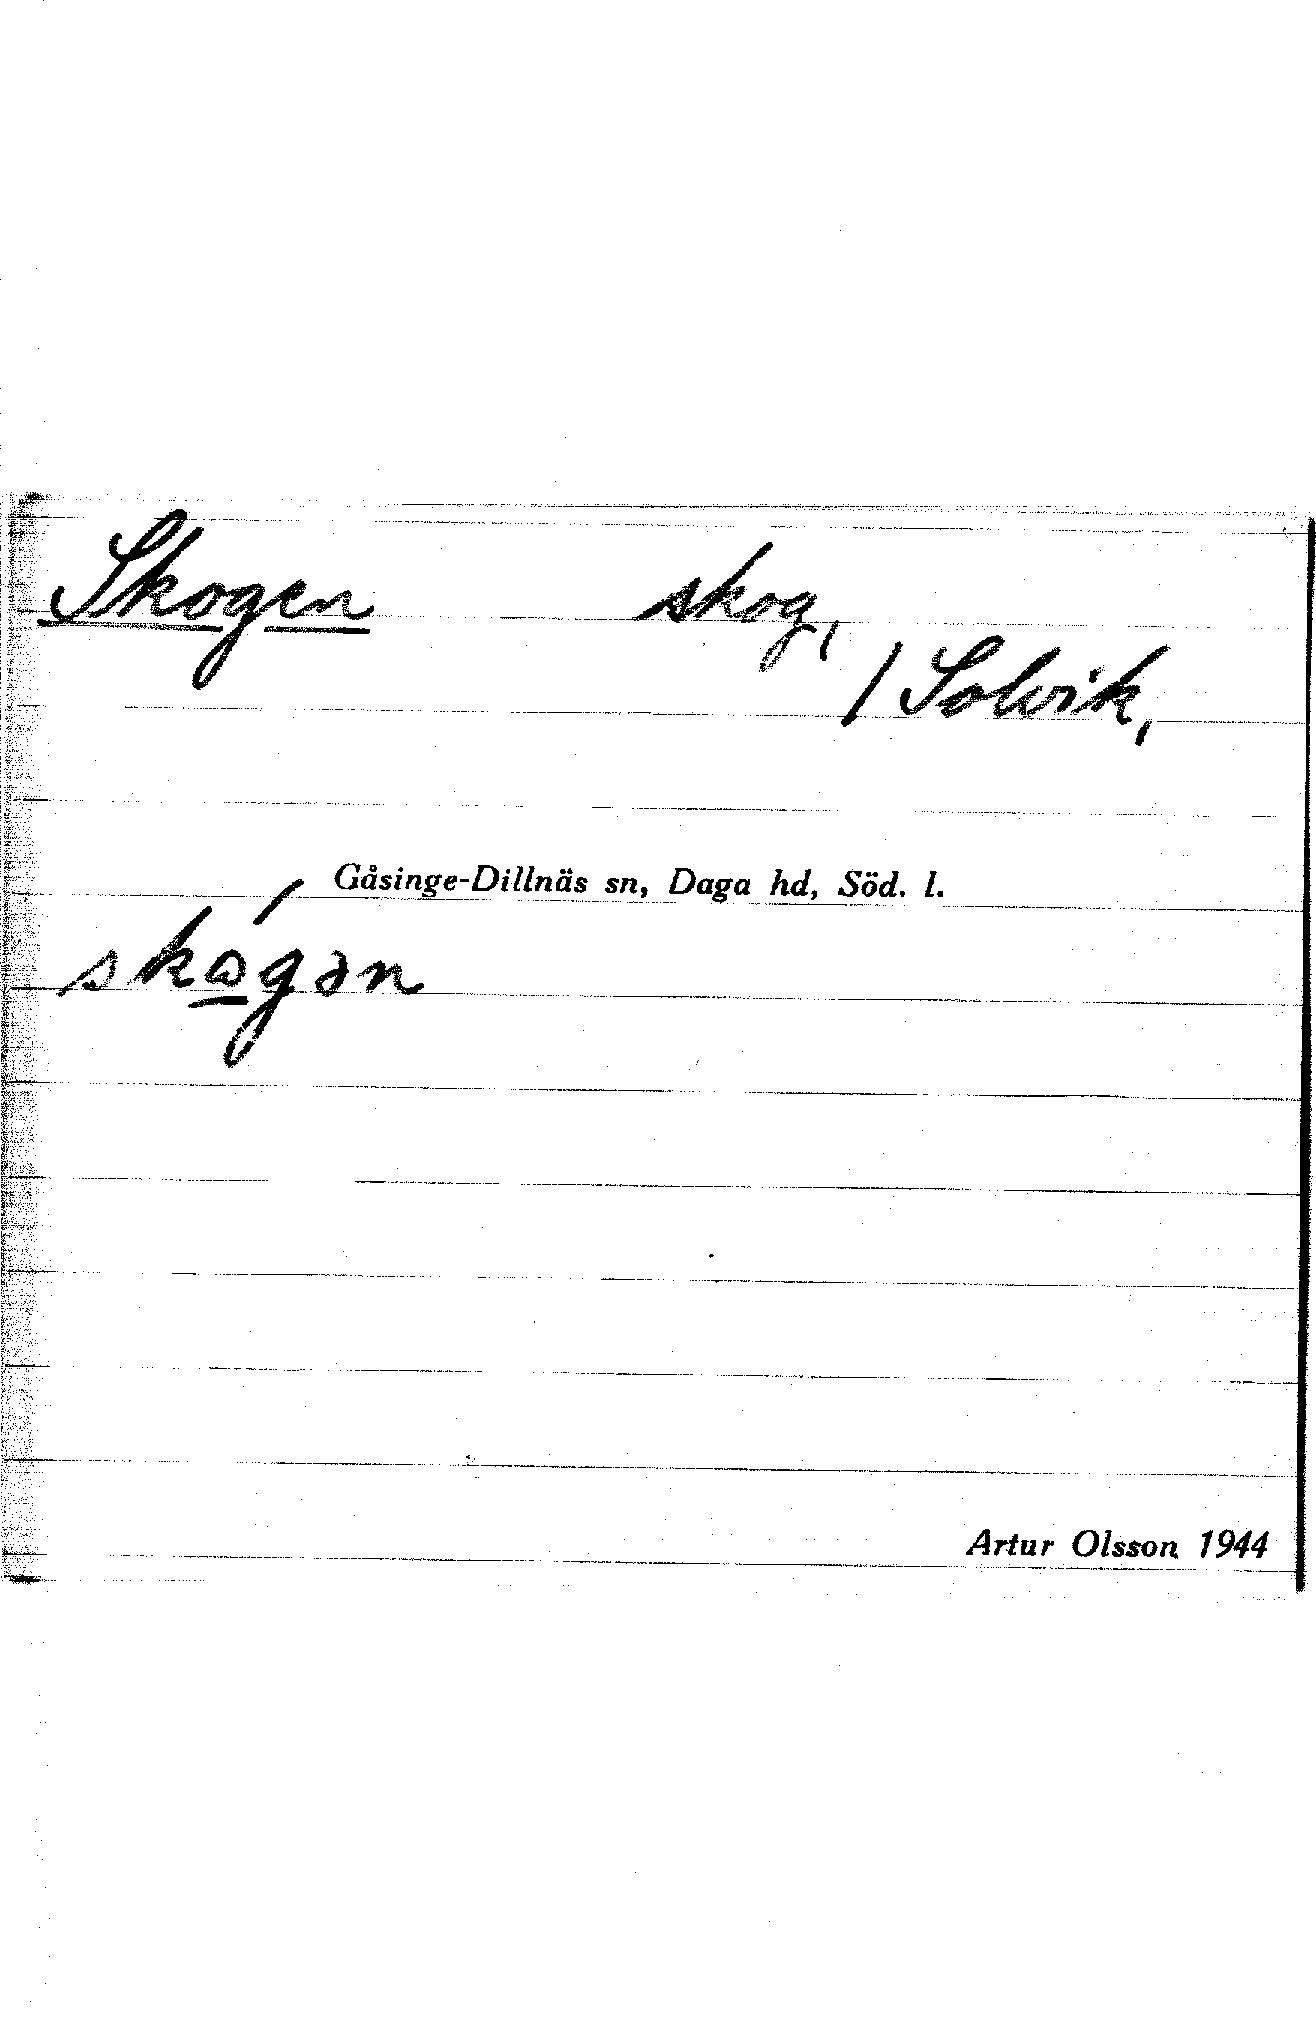 Skogen skog,
/ Solvik,
Gåsinge-Dillnäs sn, Daga hd, Söd. l.
skώ̲gən
Artur Olsson 1944